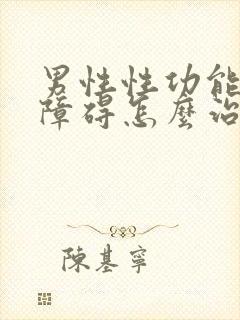 男性性功能
障碍怎麼治
陳基寧